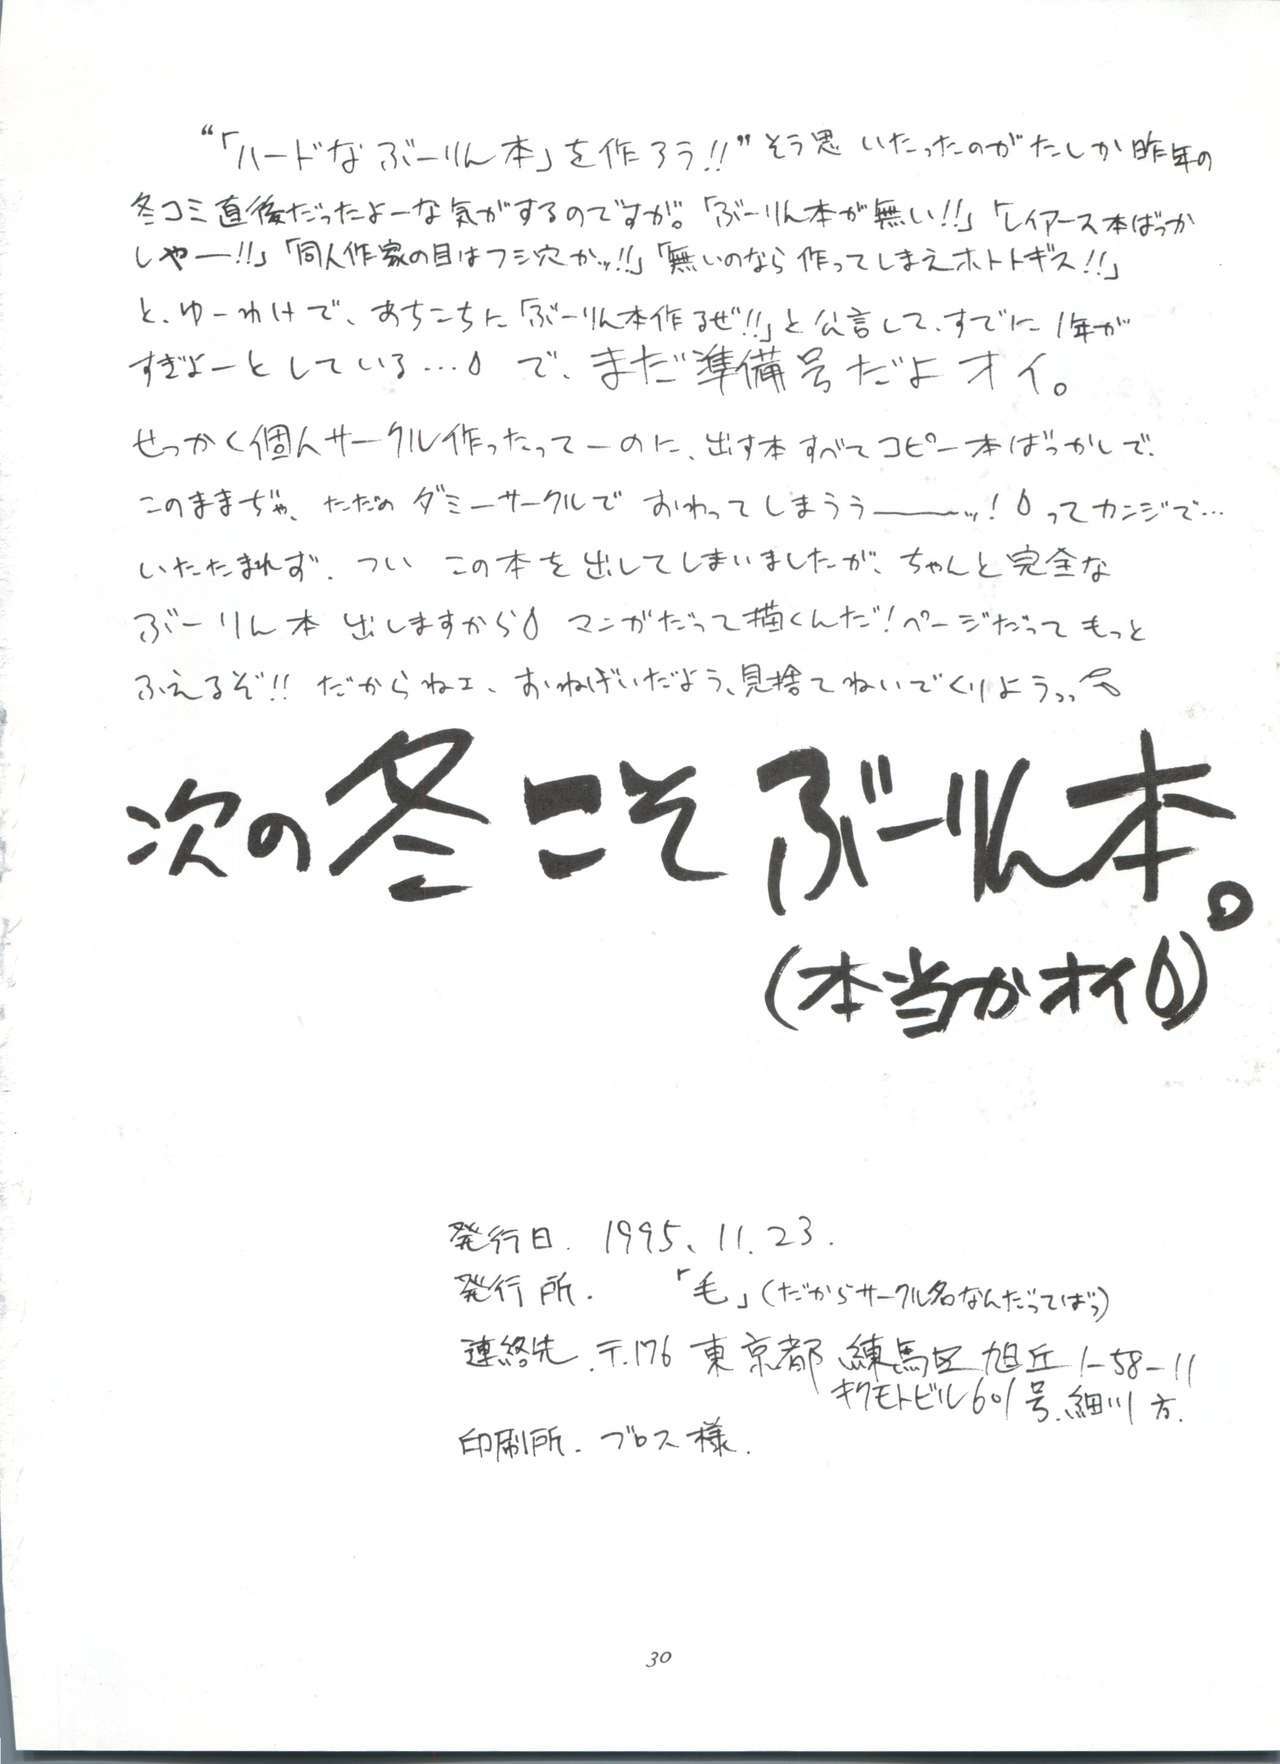 “「ハードなぶーりん本」を作ろう!!”そう思いたったのがたしか昨年の
冬コミ直後だったよーな気がするのですが。「ぶーりん本が無い!!」「レイアース本ばっか
しやー!!」「同人作家の目はフシ穴かッ!!」「無いのなら作ってしまえホトトギス!!」
と、ゆーわけで、あちこちに「ぶーりん本作るぜ!!」と公言して、すでに1年が
すぎよーとしている…で、まだ準備号だよオイ。
せっかく個人サークル作ったってーのに、出す本すべてコピー本ばっかしで、
このままぢゃ、ただのダミーサークルでおわってしまうぅーーッ!ってカンジで…
いたたまれず、ついこの本を出してしまいましたが、ちゃんと完全な
ぶーりん本出しますから マンガだって描くんだ!ページだってもっと
ふえるぞ!!だからねェ、おねげいだよう、見捨てねいでくりようっっ
次の冬こそぶーりん本。
(本当かオイ)
発行日. 1995. 11. 23.
発行所. 「毛」(だからサークル名なんだってばっ)
連絡先.〒176 東京都練馬区旭丘1-58-11
キクモトビル601号.細川方.
印刷所. ブロス様.
30